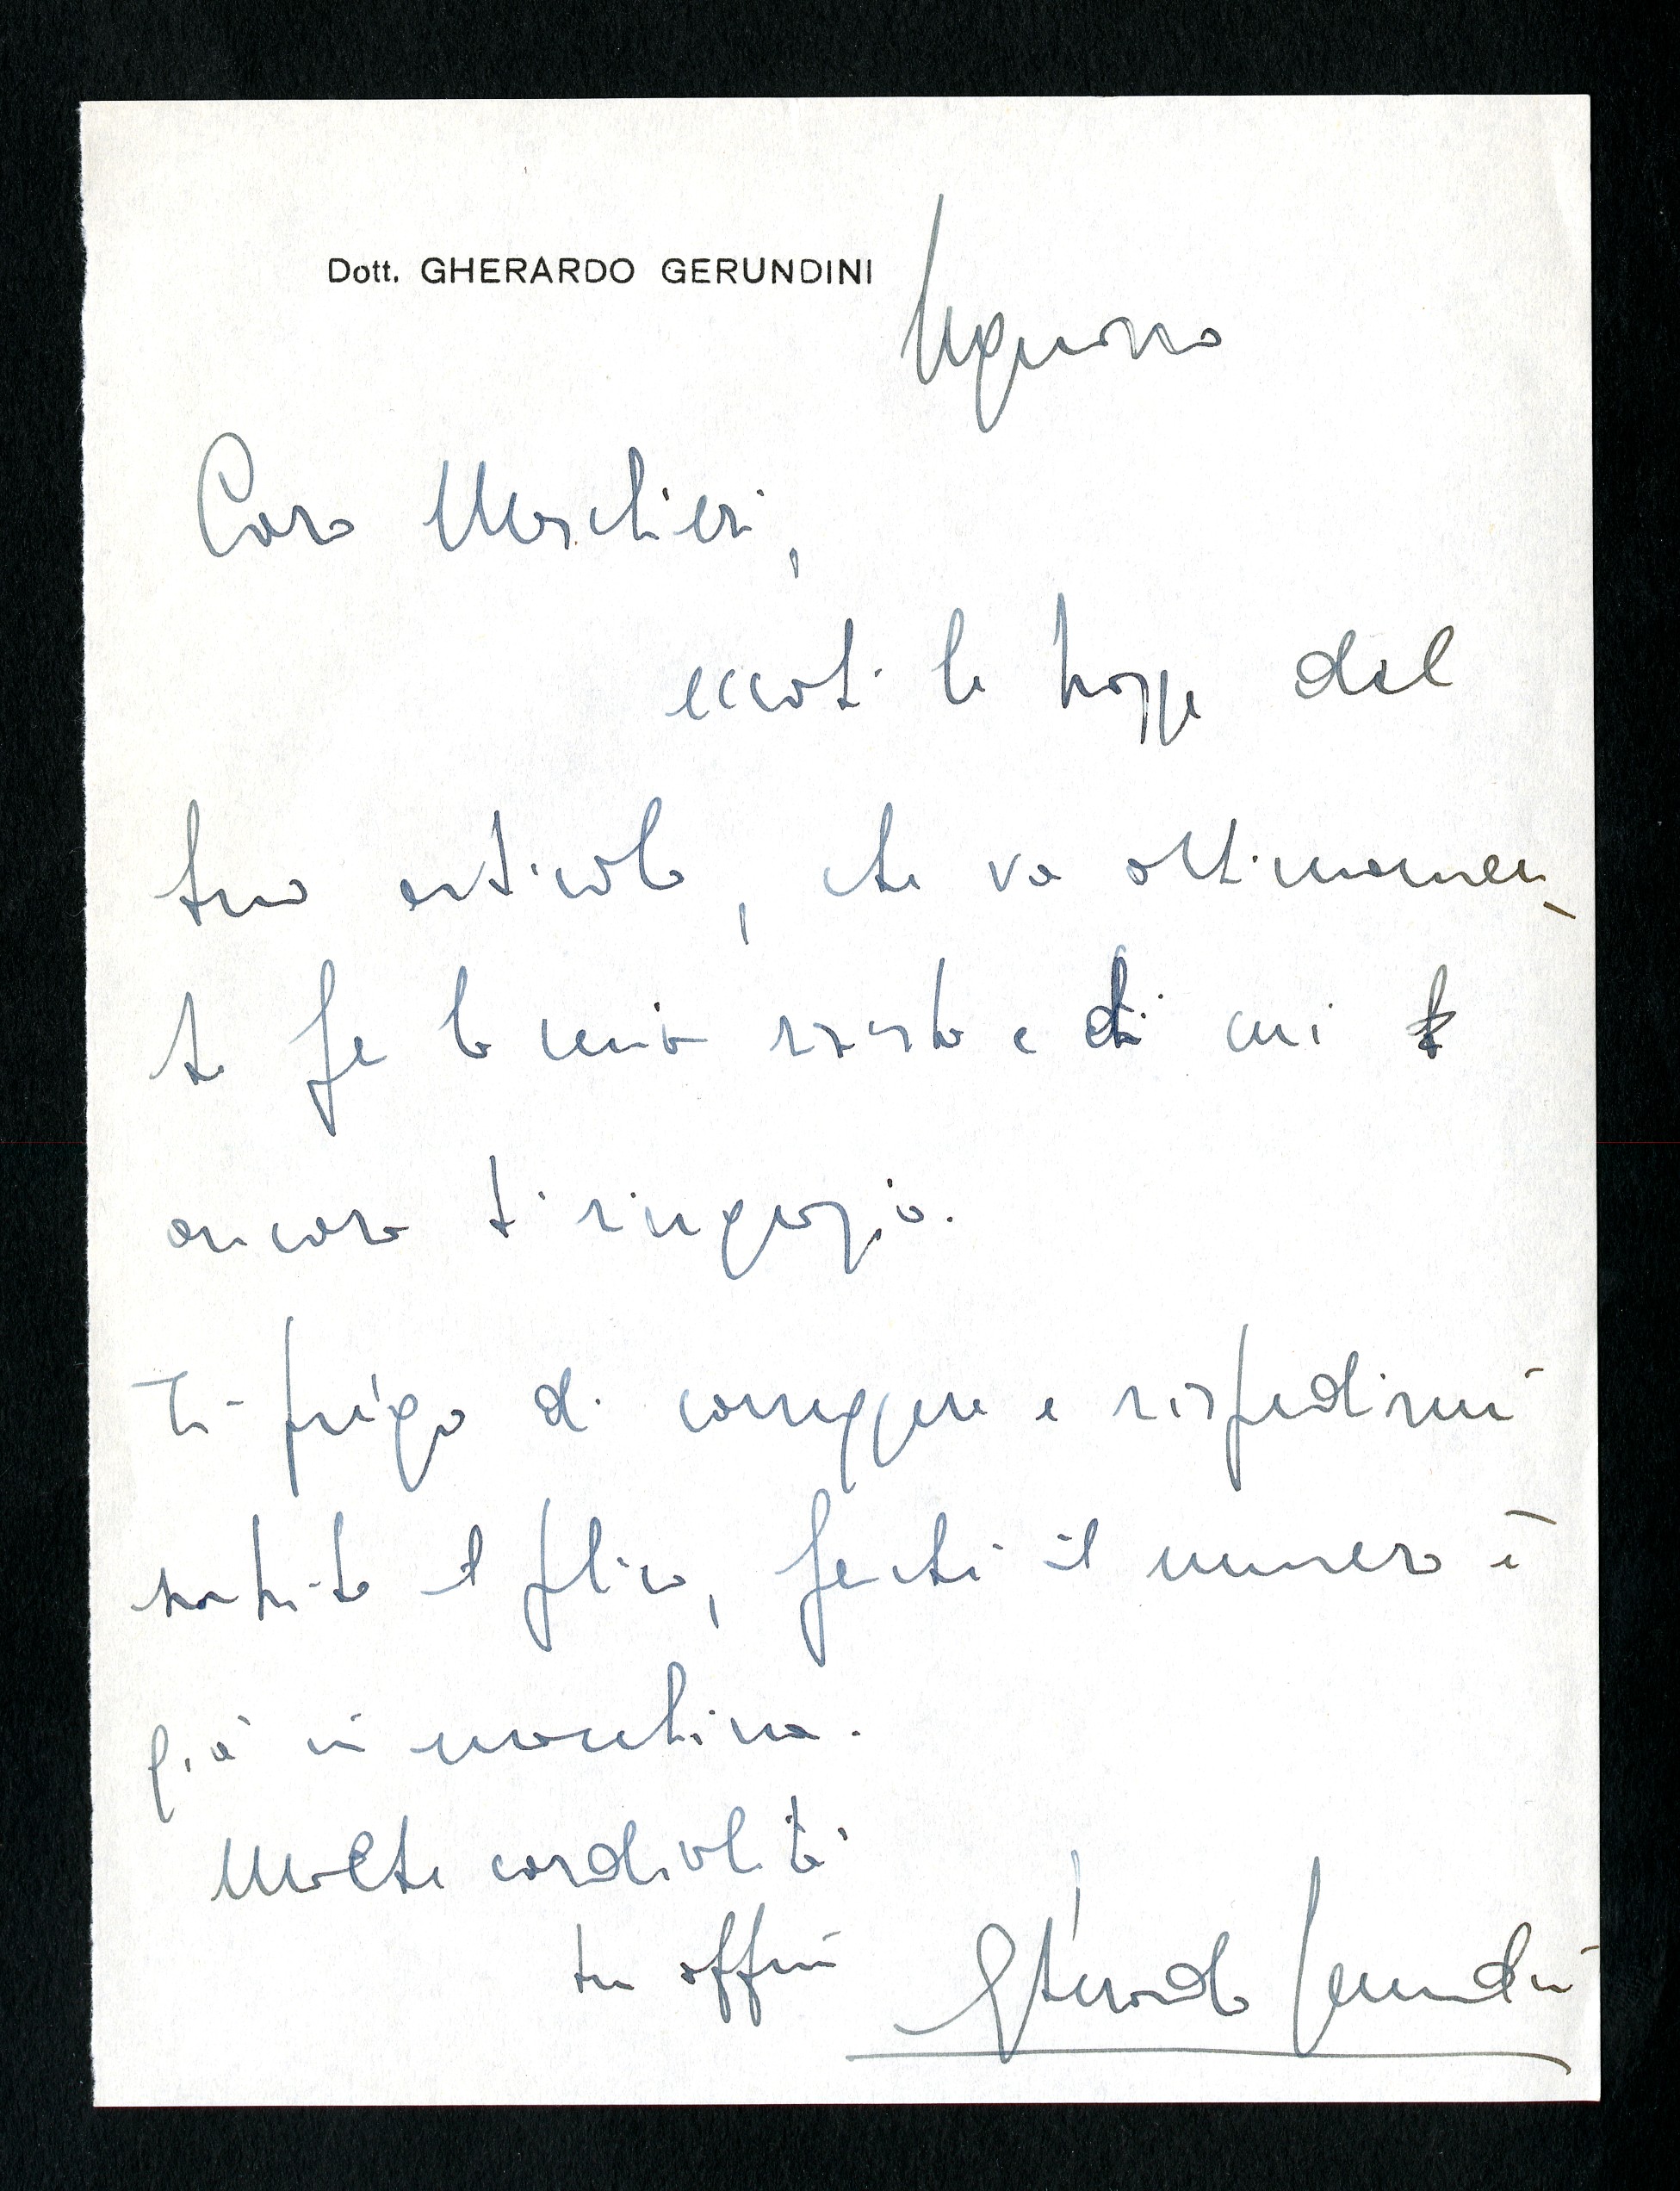 Dott. GHERARDO GERUNDINI
Caro
eccoti le bozze del
tuo articolo, che va ottimamen-
te per la mia rivista e di cui
ancora ti ringrazio.
Ti prego di correggere e rispedirmi
subito il plico, perché il numero è
già in macchina.
Molte cordialità
tuo Gherardo Gerundini